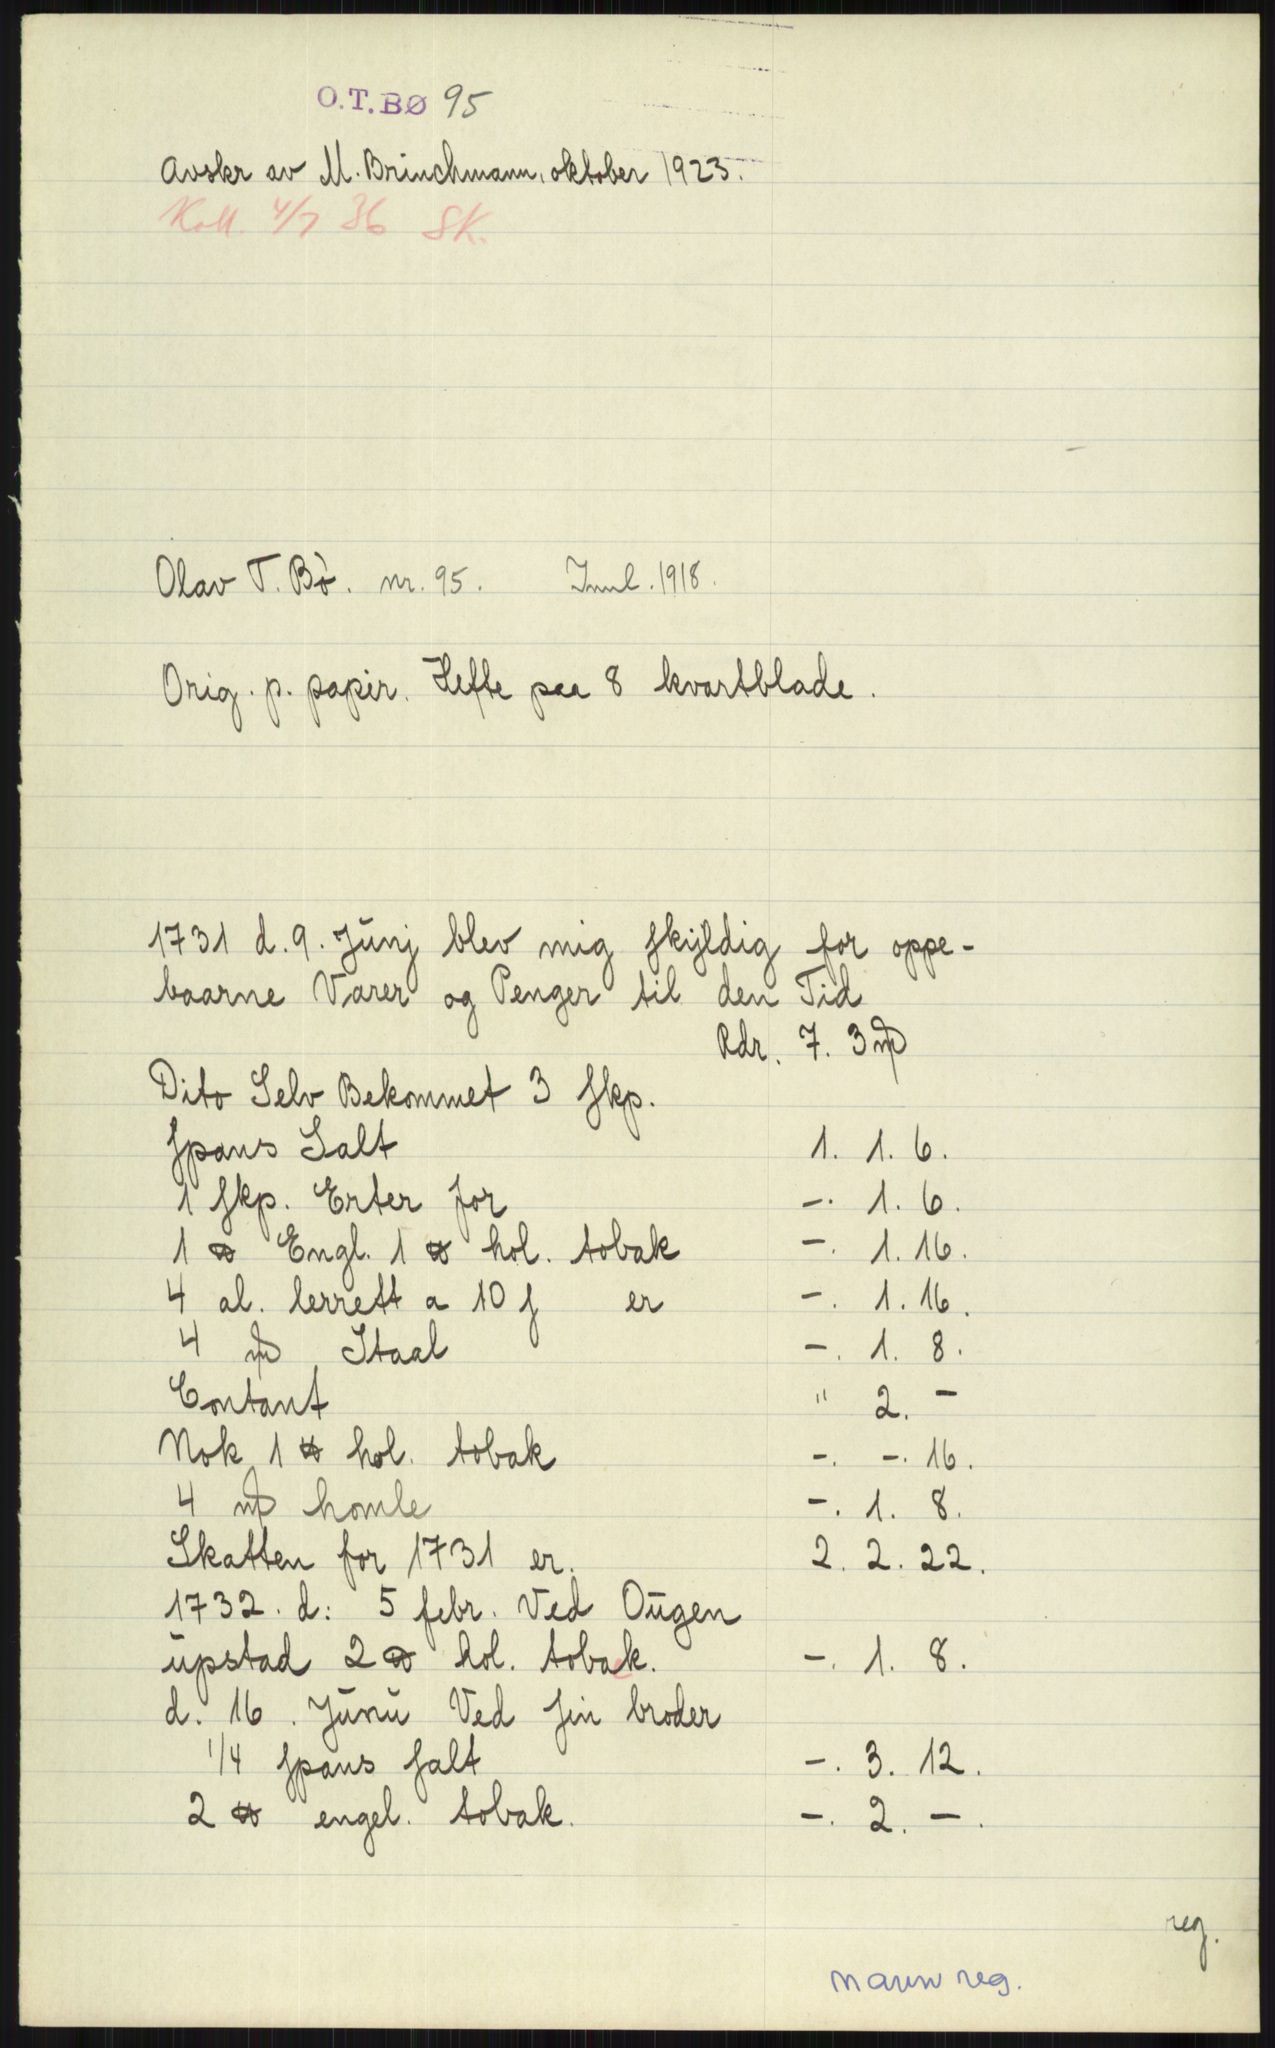 O.T.BØ 95
Avskr av M. Brinchmann, oktober 1923.
Koll. 4/7 36 SK.
Olav T. Bø. nr. 95. Innl. 1918.
Orig. p. papir. Hefte paa 8 kvartblade.
1731 d. 9. Jūnj blev mig skÿldig for oppe-
baarne Varer og Penger til den Tid
Rdr. 7. 3 ₥
Dito Selv Bekommet 3 skp.
spans Salt 1. 1. 6.
1 skp. Erter for -. 1. 6.
1 ℔ Engl. 1 ℔ hol. tobak -. 1. 16.
4 al. lerrett a 10 s er -. 1. 16.
4 ₥ Staal -. 1. 8.
Contant " 2. -
Nok 1 ℔ hol. tobak -. -. 16.
4 ₥ homle -. 1. 8.
Skatten for 1731 er. 2. 2. 22.
1732. d: 5 febr. Ved Oūgen
ūpstad 2 ℔ hol. tobak. -. 1. 8.
d. 16. Jūnū Ved sin broder
1/4 spans salt -. 3. 12.
2 ℔ engel. tobak. -. 2. -.
reg.
navn reg.